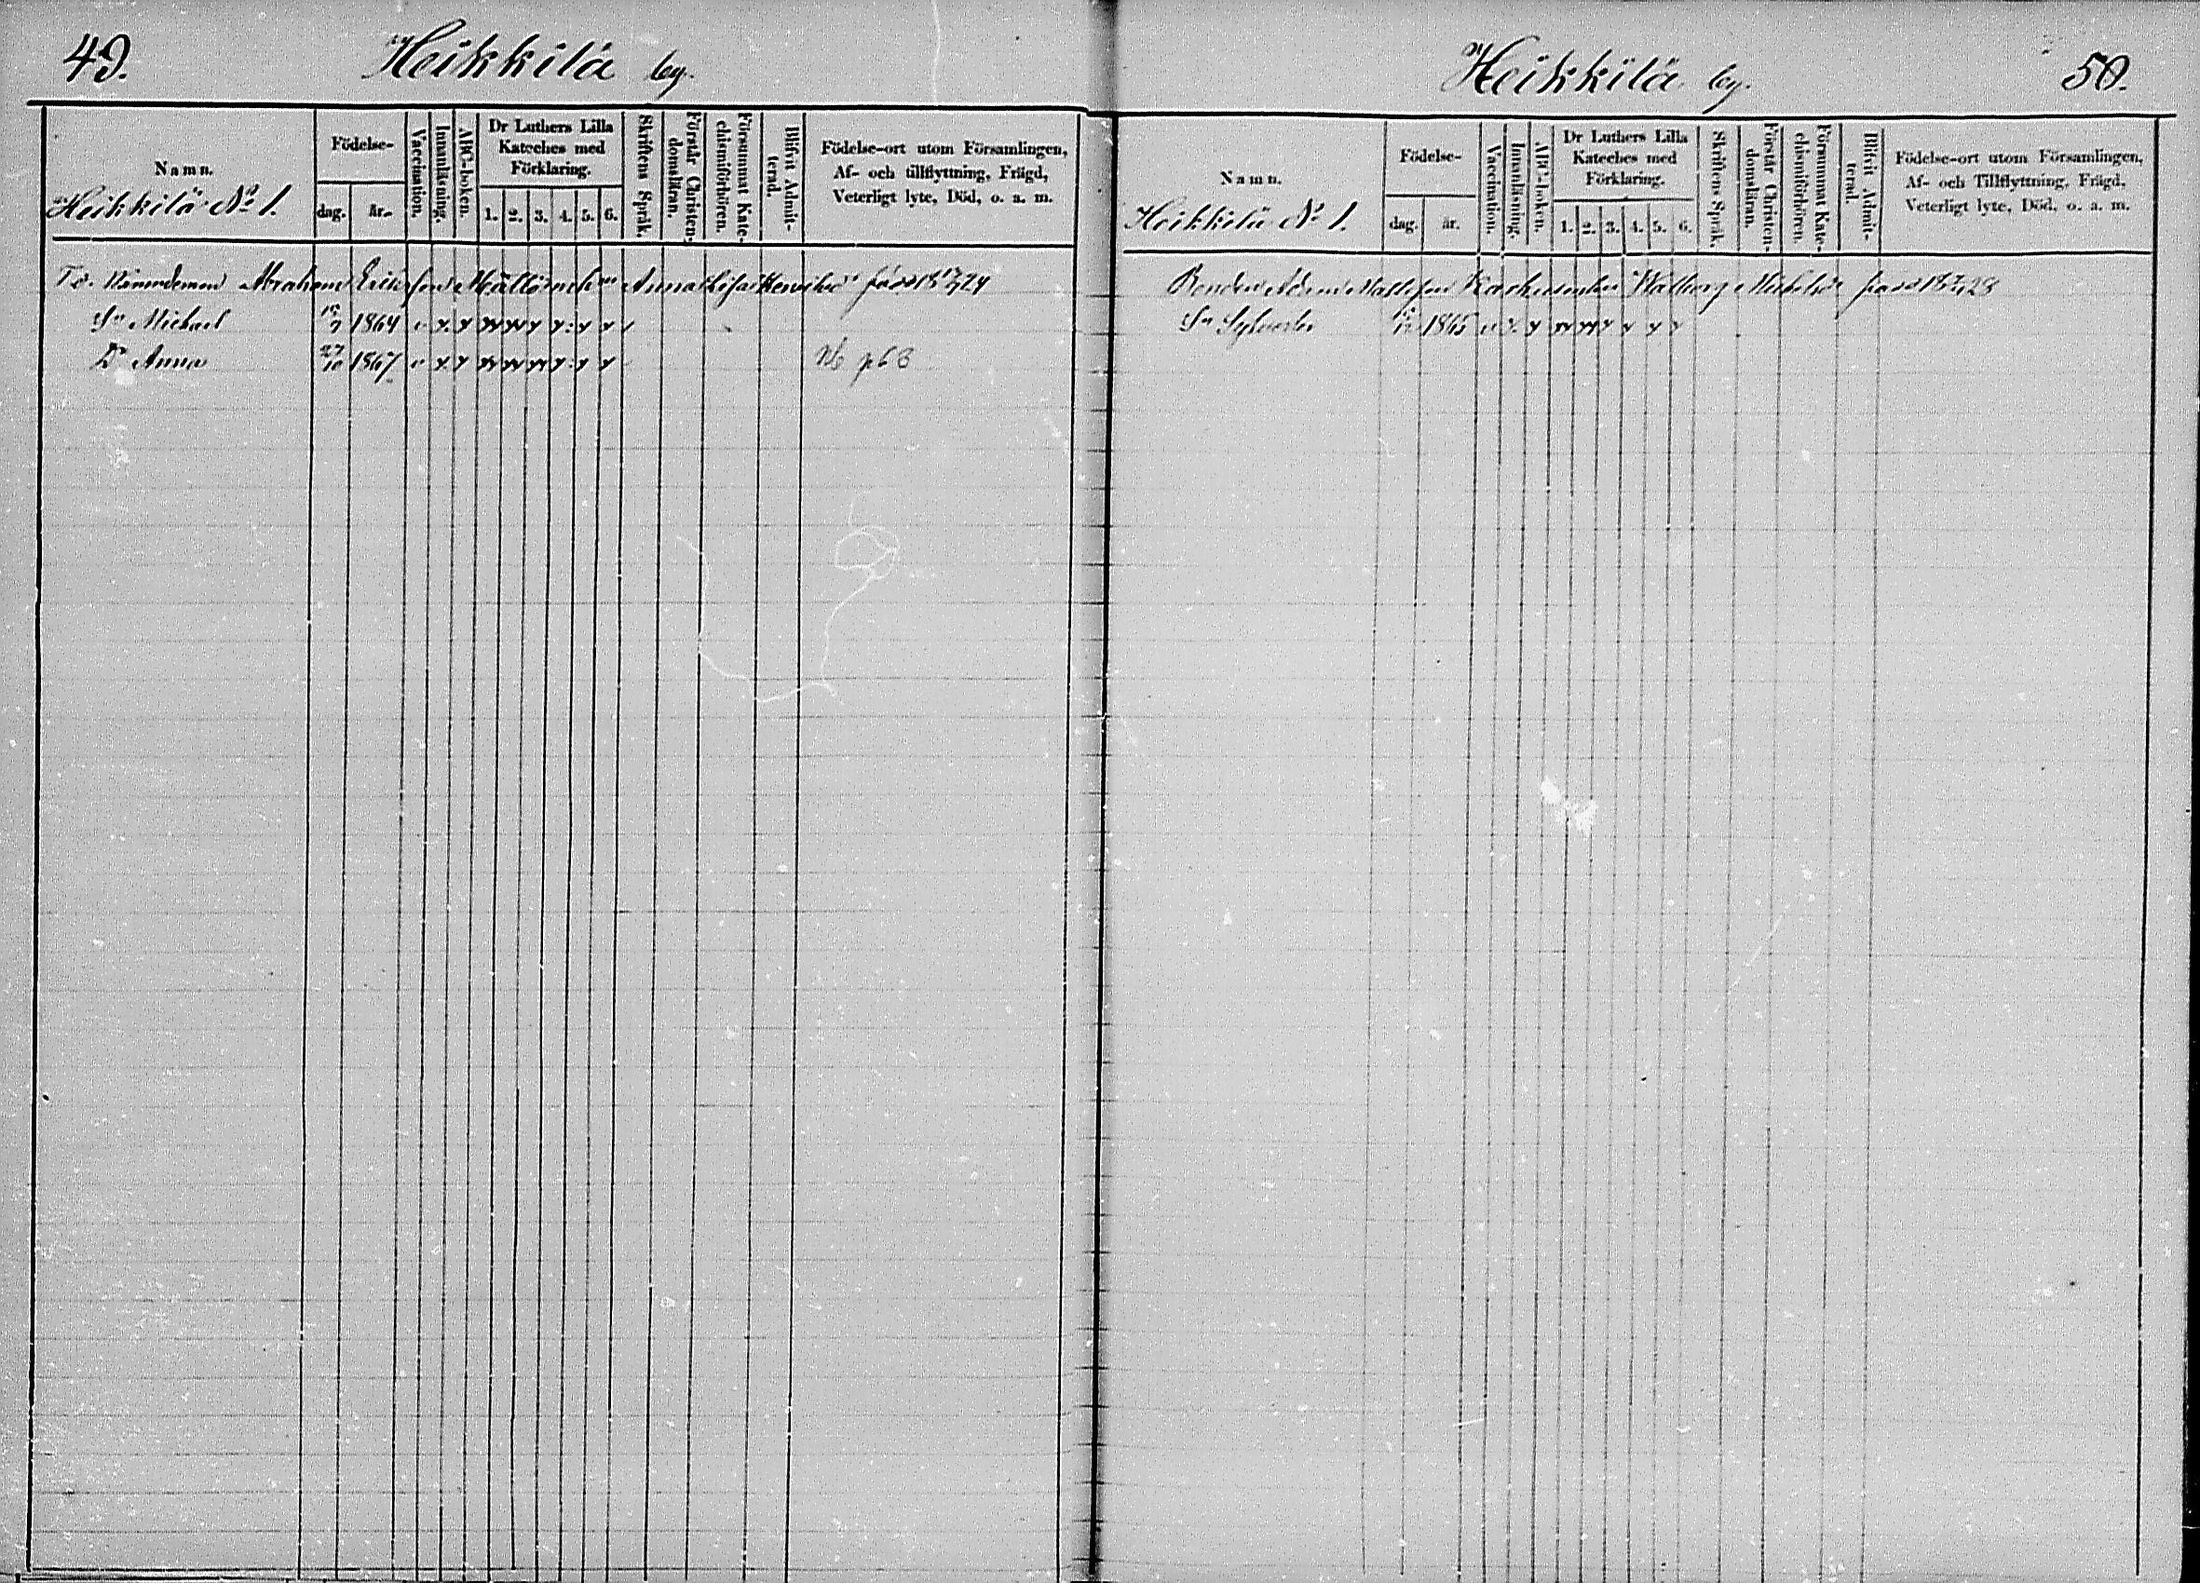 49.
Heikkilä by.
Namn.
Heikkilä No 1.
Födelse-
dag.
år.
Vaccination.
Innanläsning.
ABC-boken.
Dr Luthers Lilla
Kateches med
Förklaring.
1. 2. 3. 4. 5. 6.
Skriftens Språk.
Förstår Christen-
domsläran.
Försummat Kate-
chismiförhören.
Blifvit Admit-
terad.
Födelse-ort utom Församlingen,
Af- och tillflyttning, Frägd,
Veterligt lyte, Död, o. a. m.
Abraham Ericsson Anna Lisa
Sn Michael 1864
Dr Anna 27/10 1867 p 68
Heikkilä by.
50.
Namn.
Heikkilä No 1.
Födelse-
dag.
år.
Vaccination.
Innanläsning.
ABC-boken.
Dr Luthers Lilla
Kateches med
Förklaring.
1. 2. 3. 4. 5. 6.
Skriftens Språk.
Förstår Christen-
domsläran.
Försummat Kate-
chismiförhören.
Blifvit Admit-
terad.
Födelse-ort utom Församlingen,
Af- och Tillflyttning, Frägd,
Veterligt lyte, Död, o. a. m.
Bonden Matsson Walborg Michelsdr
Sn Sylvester 1865